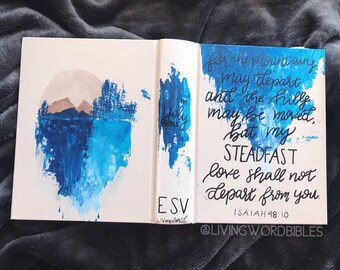 holy
bible
ESV
livingword
for the mountains
may depart
and the hills
may be moved,
but my
STEADFAST
love shall not
depart from you
ISAIAH 48:10
@LIVINGWORDBIBLES